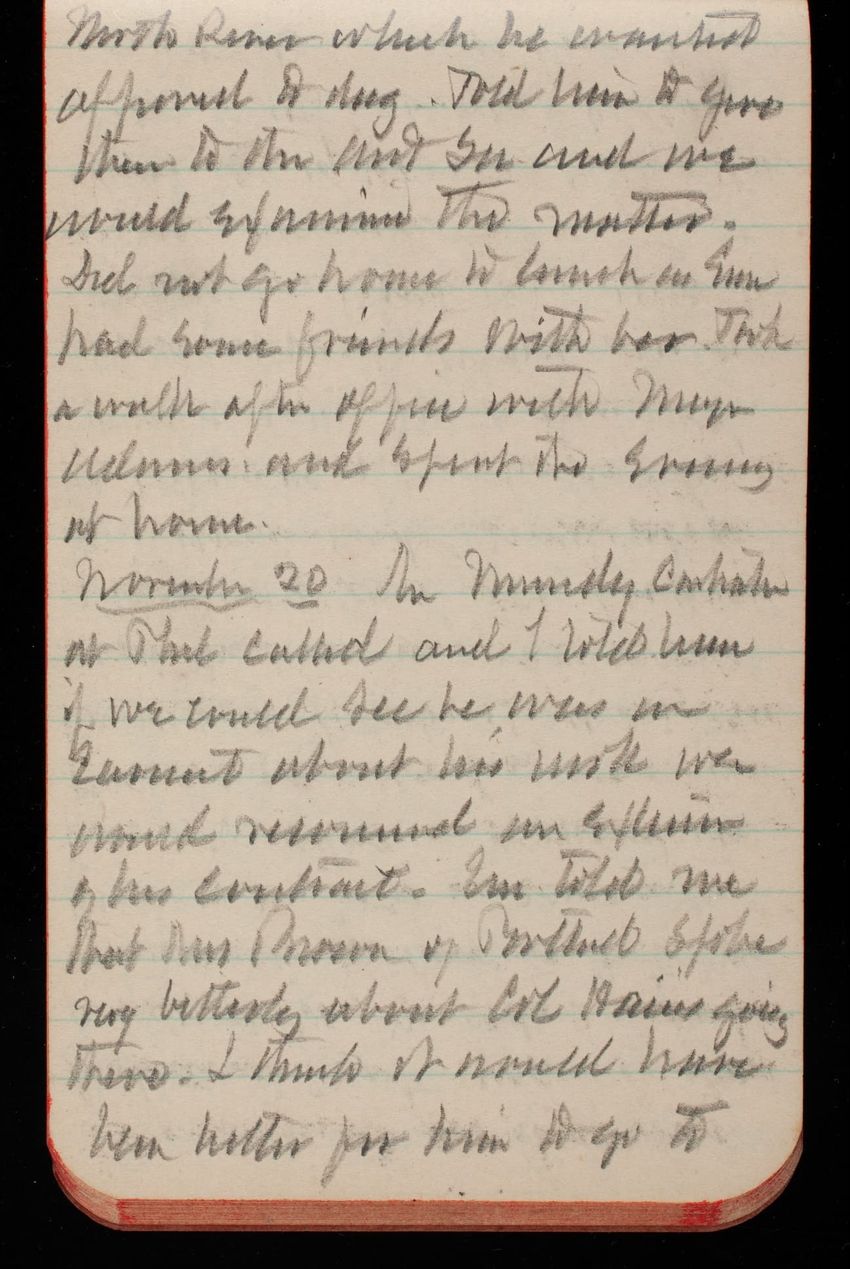 North River which he wanted
approved to day. Told him to give
them to the and we
would examine the matter.
Did not go home to lunch as Em
had some friends with her. Took
a walk after office with Major
Adams. and spent the evening
at home.
November 20 Mr
at Phil called and I told him
if we could see he was in
earnest about his work we
would recommend an exten
of his contract. Em told me
that Mrs Brown of Portland spoke
very bitterly about Col Hains going
there. I think it would have
been better for him to go to